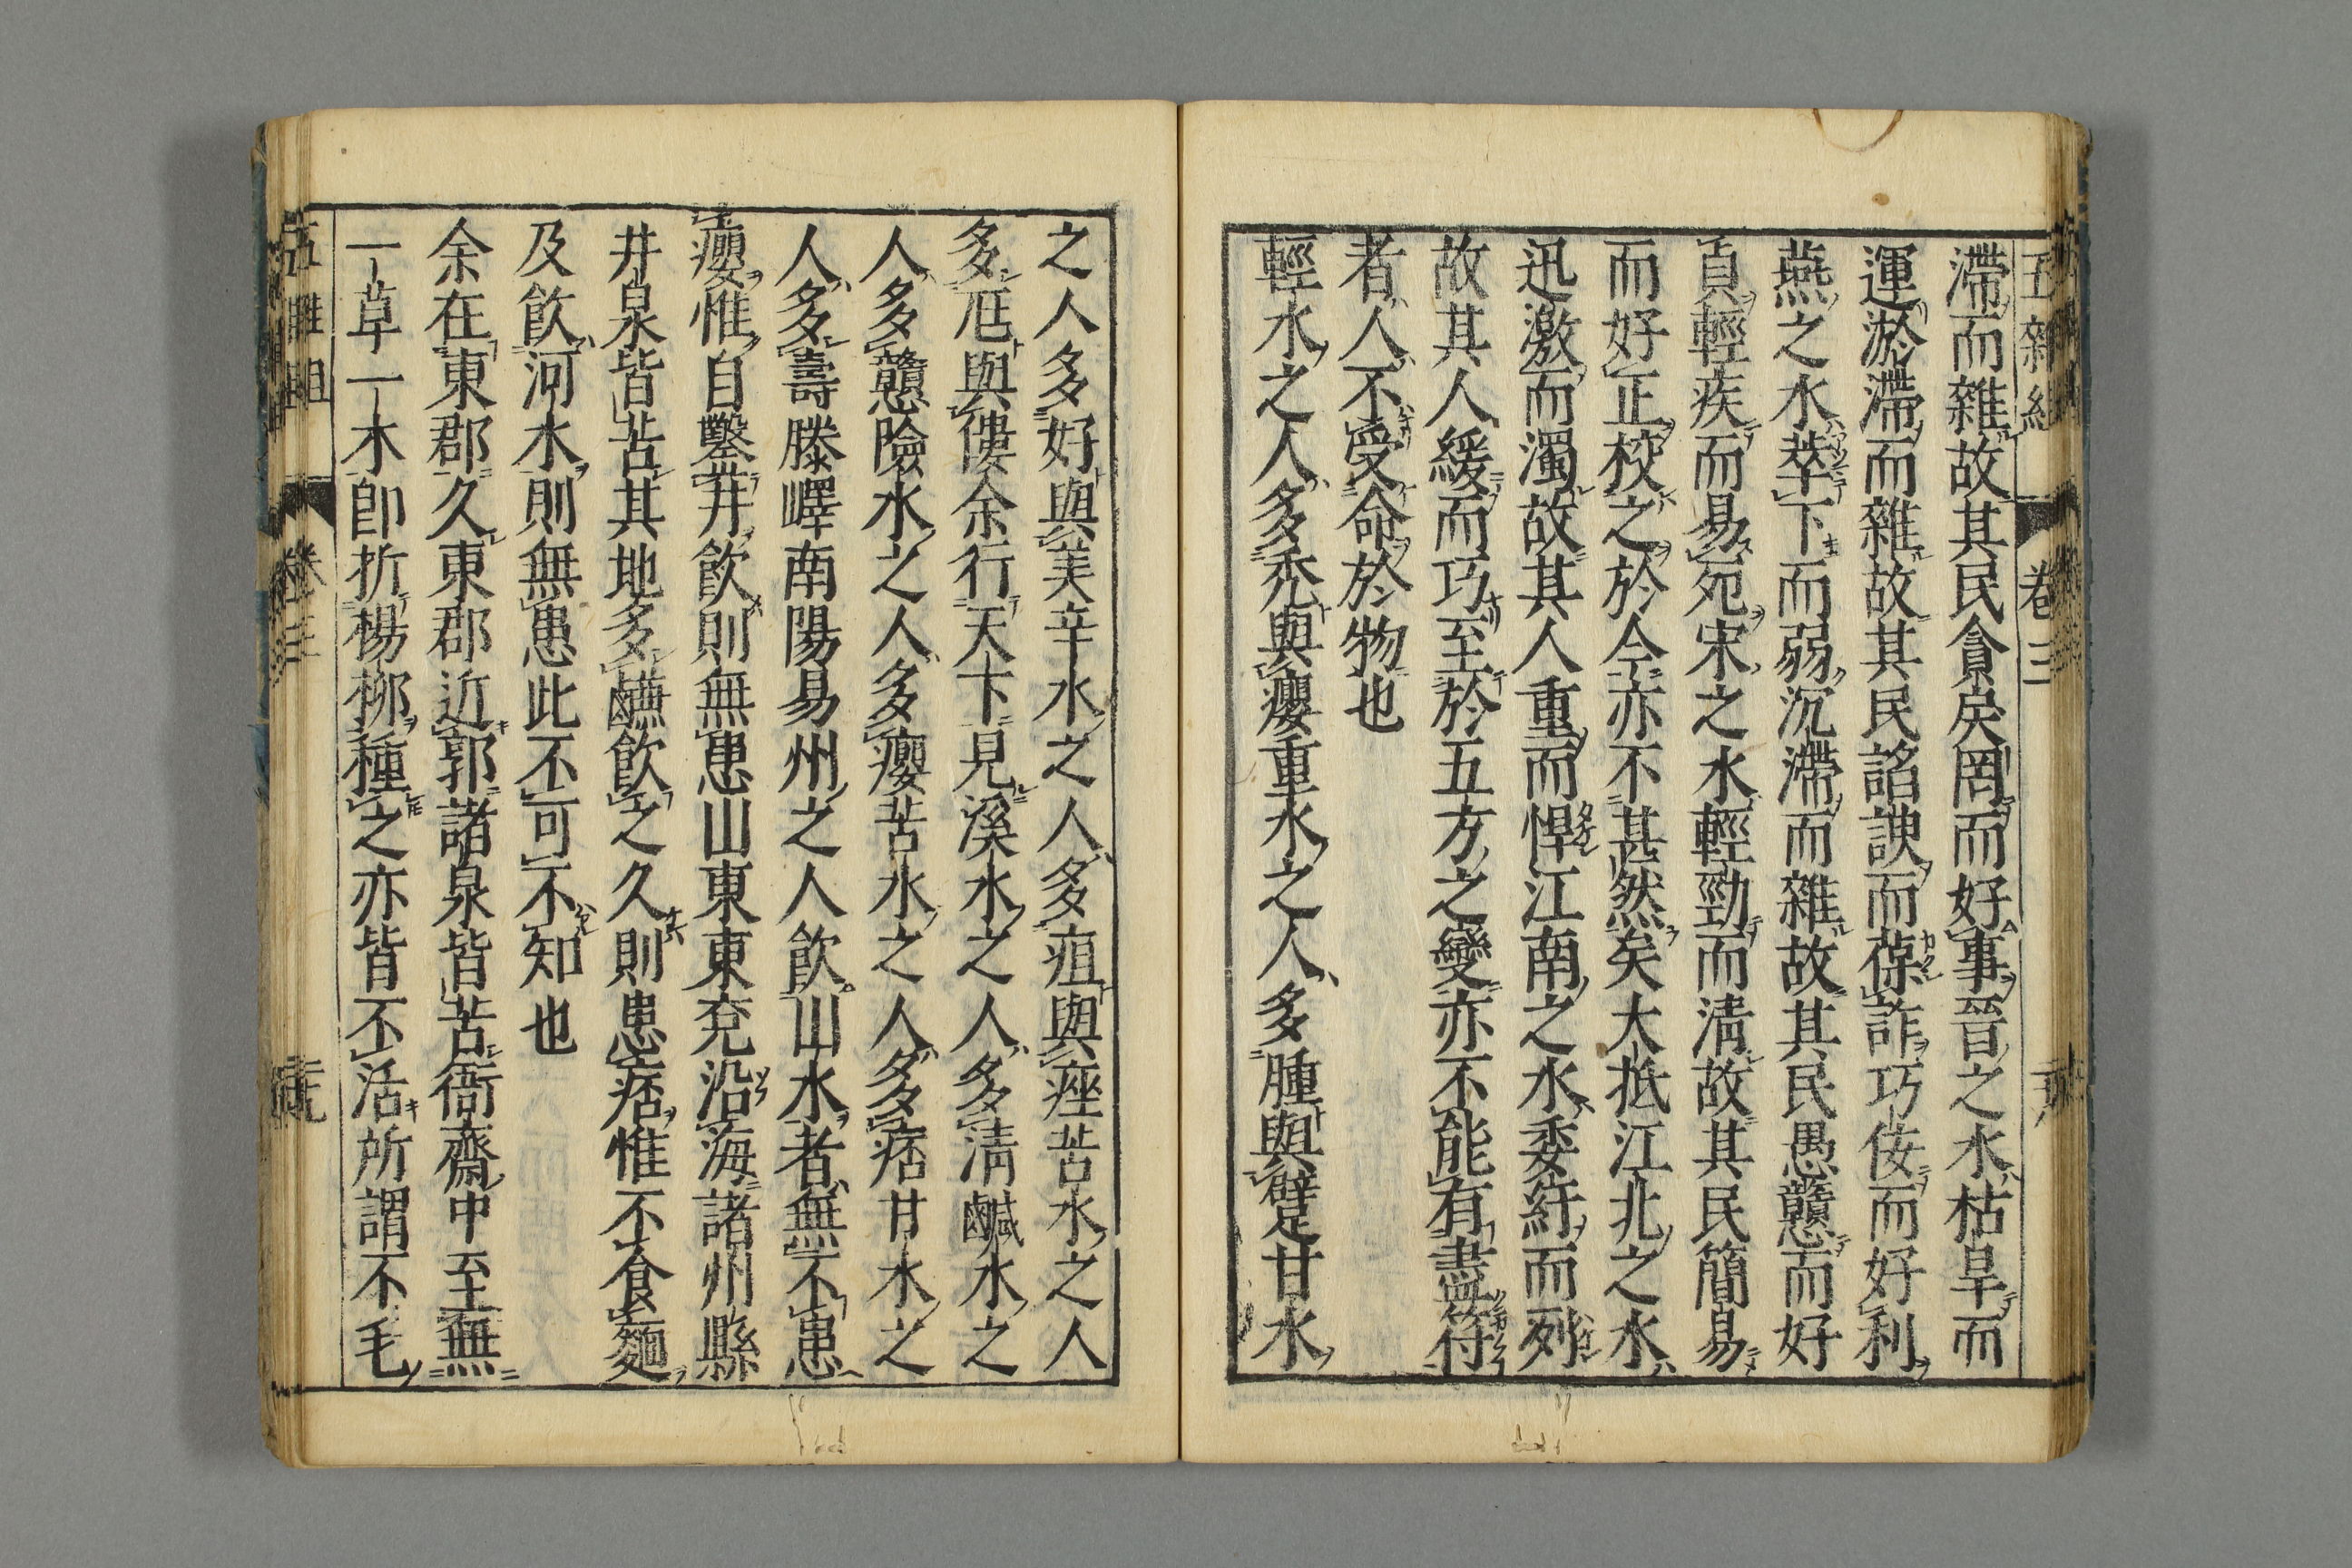 五雜組 卷三
滯而雜故其民貪戾罔而好事晉之水枯旱而
運淤滯而雜故其民諂諛而葆詐巧佞而好利
燕之水萃下而弱沉滯而雜故其民愚戇而好
貞輕疾而易死宋之水輕勁而清故其民簡易
而好正校之於今亦不甚然矣大抵江北之水
迅激而濁故其人重而悍江南之水委紆而洌
故其人緩而巧至於五方之變亦不能有盡符
者人不受命於物也
輕水之人多禿與癭重水之人多腫與躄甘水
之人多好與美辛水之人多疽與痤苦水之人
多尪與傴余行天下見溪水之人多清鹹水之
人多戇險水之人多癭苦水之人多痞甘水之
人多壽滕嶧南陽易州之人飲山水者無不患
癭惟自鑿井飲則無患山東東兗沿海諸州縣
井泉皆苦其地多鹻飲之久則患痞惟不食麵
及飲河水則無患此不可不知也
余在東郡久東郡近郭諸泉皆苦衙齋中至無
一草一木卽折楊柳種之亦皆不活所謂不毛
五雜組 卷三